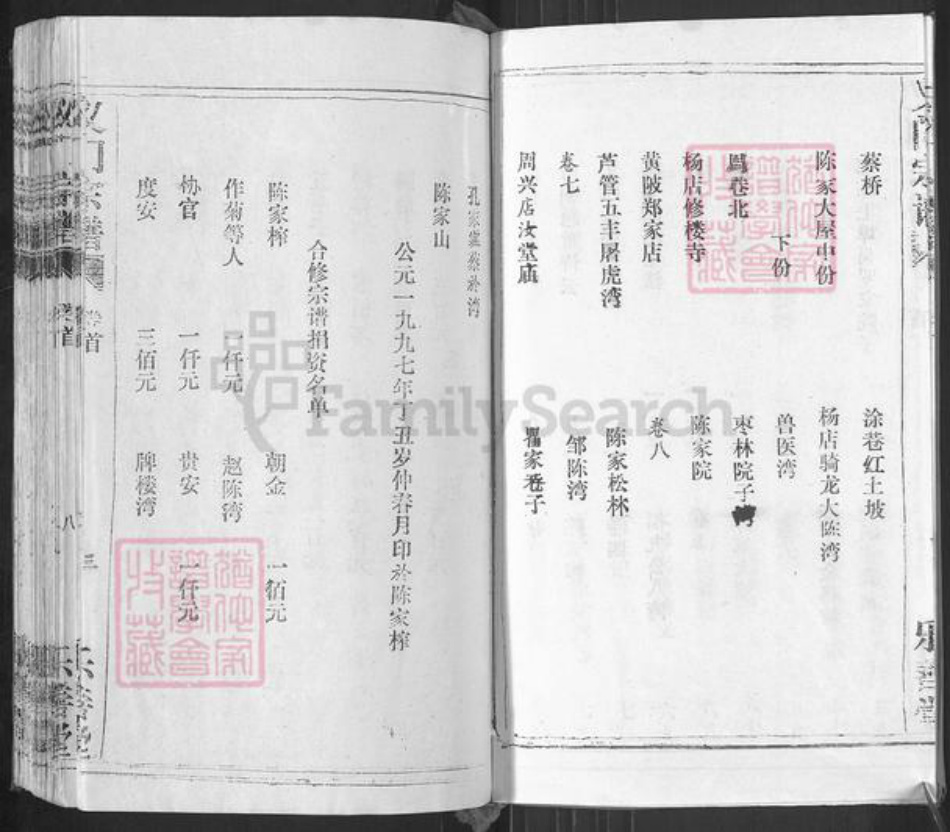 蔡桥
涂巷红土坡
陈家大屋中份
杨店骑龙大陈湾
下份
兽医湾
凤卷北
枣林院子湾
杨店修楼寺
陈家院
黄陂郑家店
卷八
芦管五丰屠虎湾
陈家松林
卷七
邹陈湾
周兴店汝堂庙
瞿家巷子
孔家寨蔡於湾
陈家山
公元一九九七年丁丑岁仲春月印於陈家榨
合修宗谱捐资名单
陈家榨
朝金
一佰元
作菊等人
一仟元
赵陈湾
协官
一仟元
贵安
一仟元
度安
三佰元
牌楼湾
卷首
八
三
乐善堂
FamilySearch